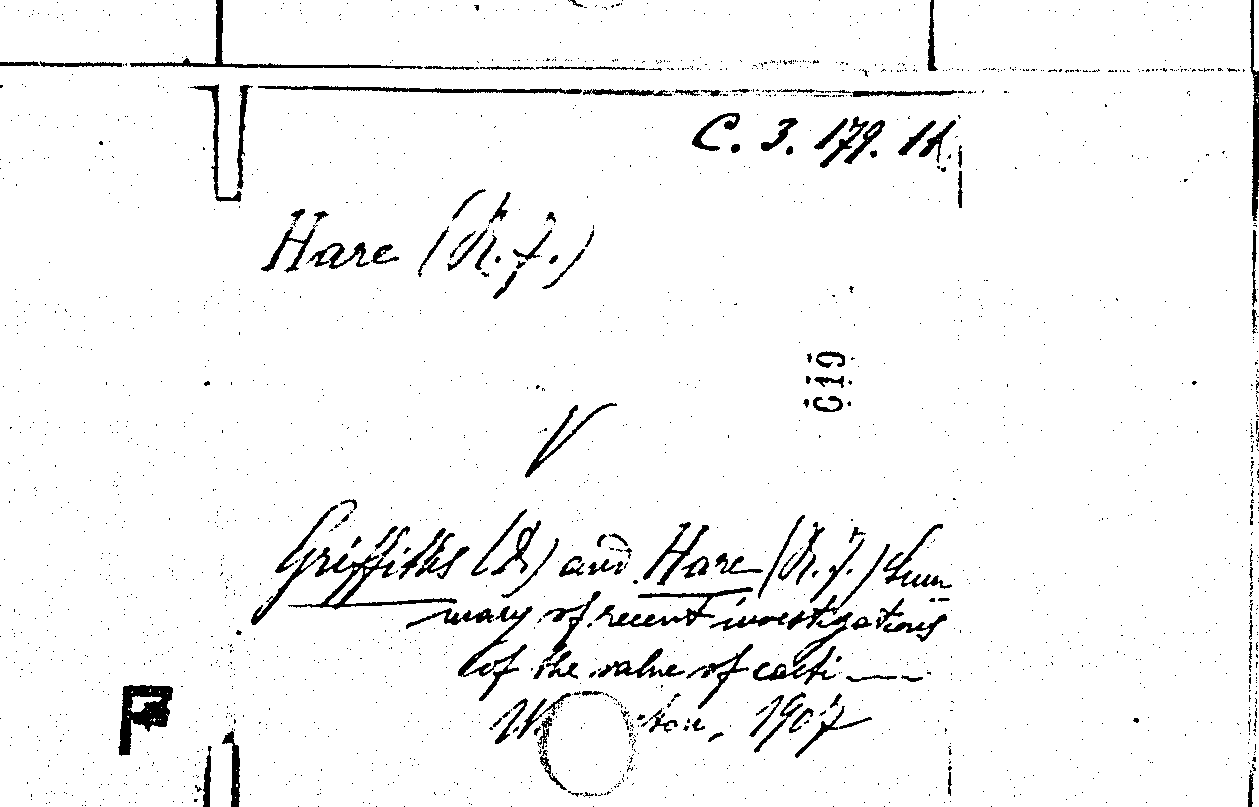 C. 3. 179. 11
Hare (R. F.)
G19
V
Griffiths (D.) and Hare (R. F.) Sum-
mary of recent investigations
of the value of cacti ——
W ton, 1907